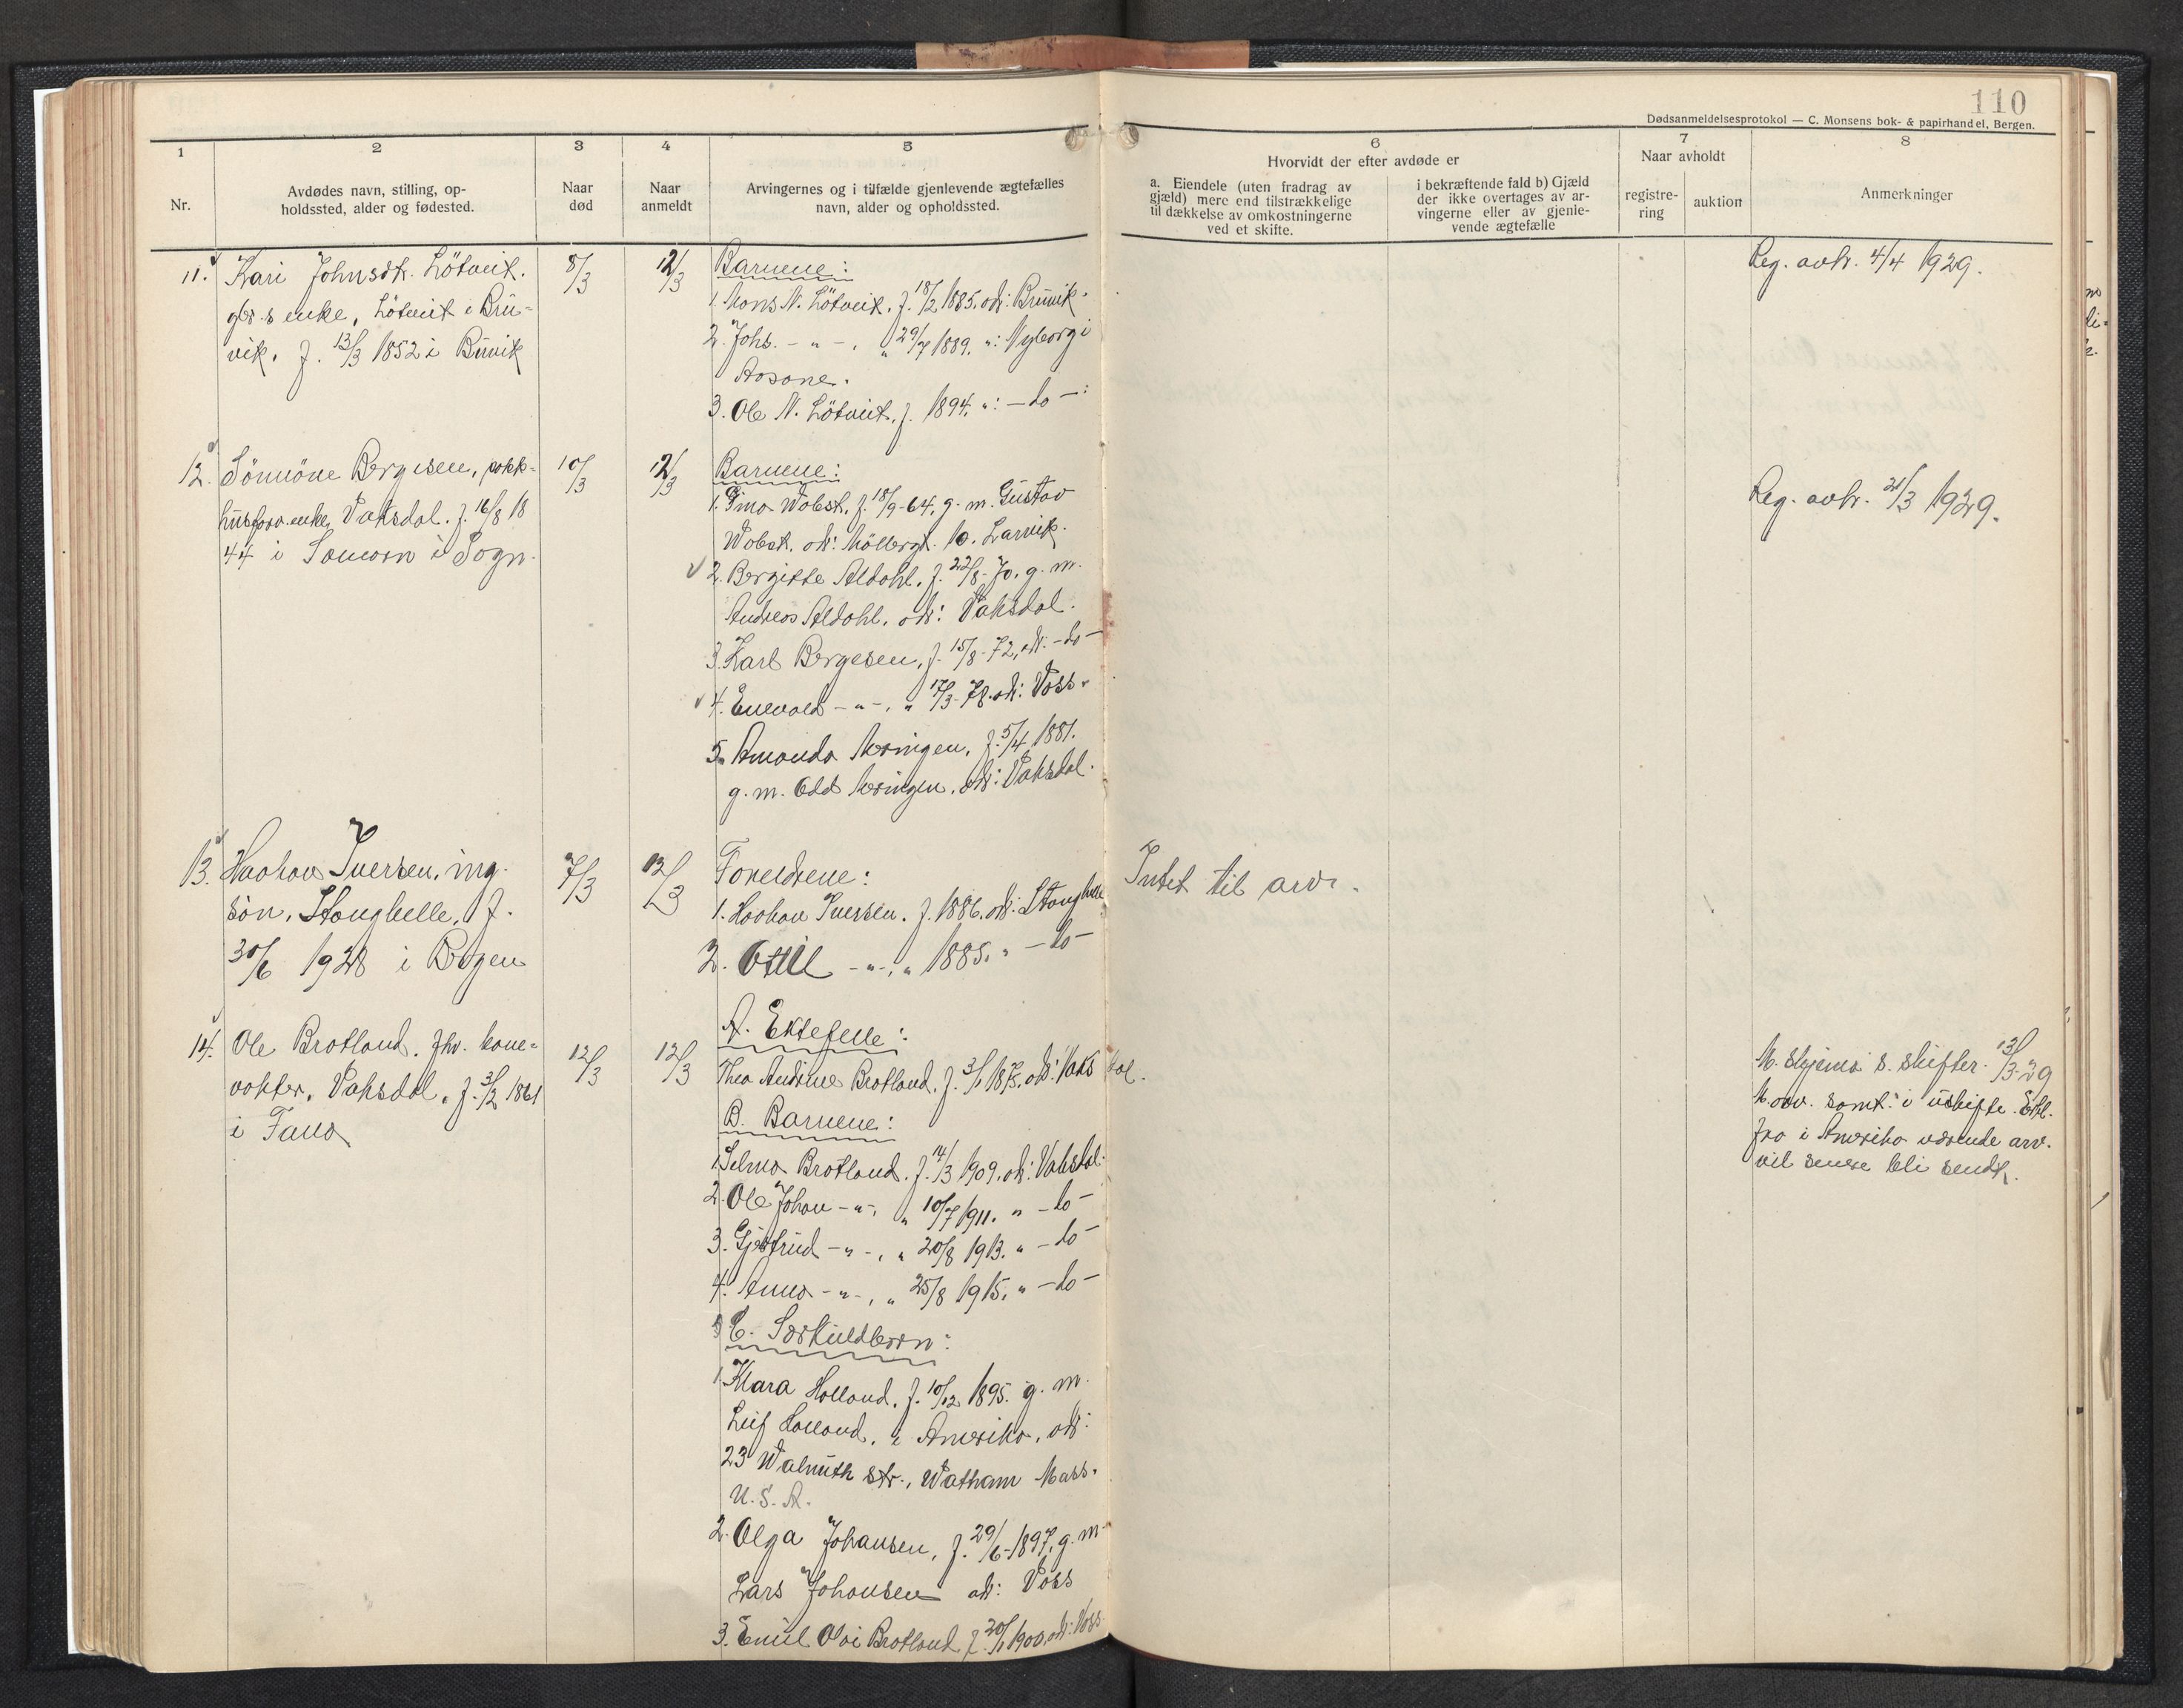 110
Dødsanmeldelsesprotokol — C. Monsens bok- & papirhandel, Bergen.
1
2
3
4
5
6
7
8
Nr.
Avdødes navn, stilling, op-
holdssted, alder og fødested.
Naar
død
Naar
anmeldt
Arvingernes og i tilfælde gjenlevende ægtefælles
navn, alder og opholdssted.
Hvorvidt der efter avdøde er
a. Eiendele (uten fradrag av
gjæld) mere end tilstrækkelige
til dækkelse av omkostningerne
ved et skifte.
i bekræftende fald b) Gjæld
der ikke overtages av ar-
vingerne eller av gjenle-
vende ægtefælle
Naar avholdt
registre-
ring
auktion
Anmerkninger
11. Kari Johnsdtr. Lötveit.
gbr.s enke, Lötveit i Bru-
vik. f. 13/3 1852 i Bruvik
8/3
12/3
Barnene:
1. Mons N. Lötveit. f. 18/2 1885. ads: Bruvik.
2. Johs. - " - , " 29/7 1889. ": Nyborg i
Aasane.
3. Ole N. Lötveit. f. 1894. ": - do - :
Reg. avh. 4/4 1929.
12. Sönnöve Bergesen, pakk-
husforv. enke, Vaksdal. f. 16/8 18
44 i Somvorn i Sogn.
10/3
12/3
Barnene:
1. Gina Wobst. f. 18/9-64. g. m. Gustav
Wobst. ads: Möllergt. 10. Larvik.
2. Bergitte Aldahl. f. 22/8-70. g. m.
Andreas Aldahl. ads: Vaksdal.
3. Karl Bergesen, f. 15/8-72, ads. - do -
4. Enevald - " - , " 17/3-78. ads: Voss.
5. Amanda Mæringen, f. 5/4 1881.
g. m. Odd Mæringen. ads: Vaksdal.
Reg. avh. 21/3 1929.
13. Haakon Iversen, ing.
sön, Stanghelle, f.
30/6 1928 i Bergen
7/3
12/3
Foreldrene:
1. Haakon Iversen. f. 1886. ads: Stanghelle
2. Ottil - " - , " 1885. " - do -
Intet til arv.
14. Ole Brotland. fhv. bane-
vokter. Vaksdal. f. 3/2 1861
i Fana
12/3
12/3
A. Ektefelle:
Thea Andrine Brotland. f. 3/1 1875. ads: Vaksdal.
B. Barnene:
1. Selma Brotland. f. 14/3 1909. ads: Vaksdal.
2. Ole Johan - " - , " 10/7 1911. " - do -
3. Gjertrud - " - , " 20/8 1913. " - do -
4. Anna - " - , " 25/8 1915. " - do -
C. Særkuldbarn:
1. Klara Holland. f. 10/12 1895. g. m.
Leif Holland. i Amerika, ads:
23 Walnuth str., Watham Mass.
U. S. A.
2. Olga Johansen, f. 29/6-1897. g. m.
Lars Johansen ads: Voss
3. Emil Olai Brotland f. 20/1 1900. ads: Voss.
M. skjema s. skifter. 13/3-29
M. arv. samt. i uskifte. Erkl.
fra i Amerika værende arv.
vil senere bli sendt.